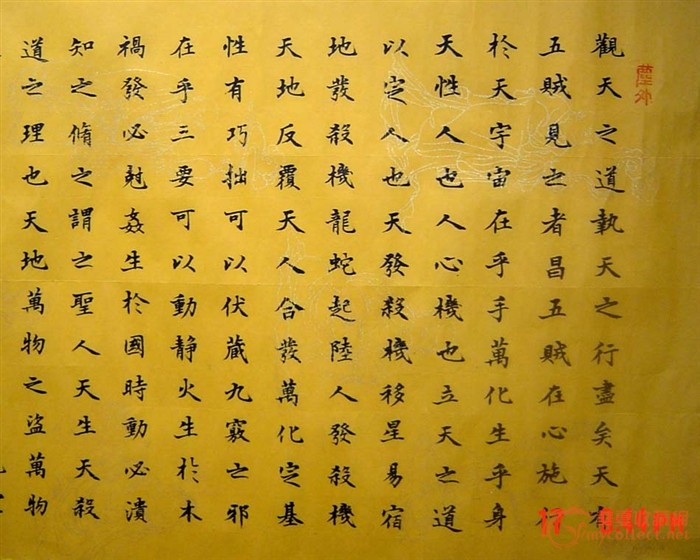 觀天之道執天之行盡矣天有
五賊見之者昌五賊在心施行
於天宇宙在乎手萬化生乎身
天性人也人心機也立天之道
以定人也天發殺機移星易宿
地發殺機龍蛇起陸人發殺機
天地反覆天人合發萬化定基
性有巧拙可以伏藏九竅之邪
在乎三要可以動靜火生於木
禍發必尅姦生於國時動必潰
知之脩之謂之聖人天生天殺
道之理也天地萬物之盜萬物
mycollect.net